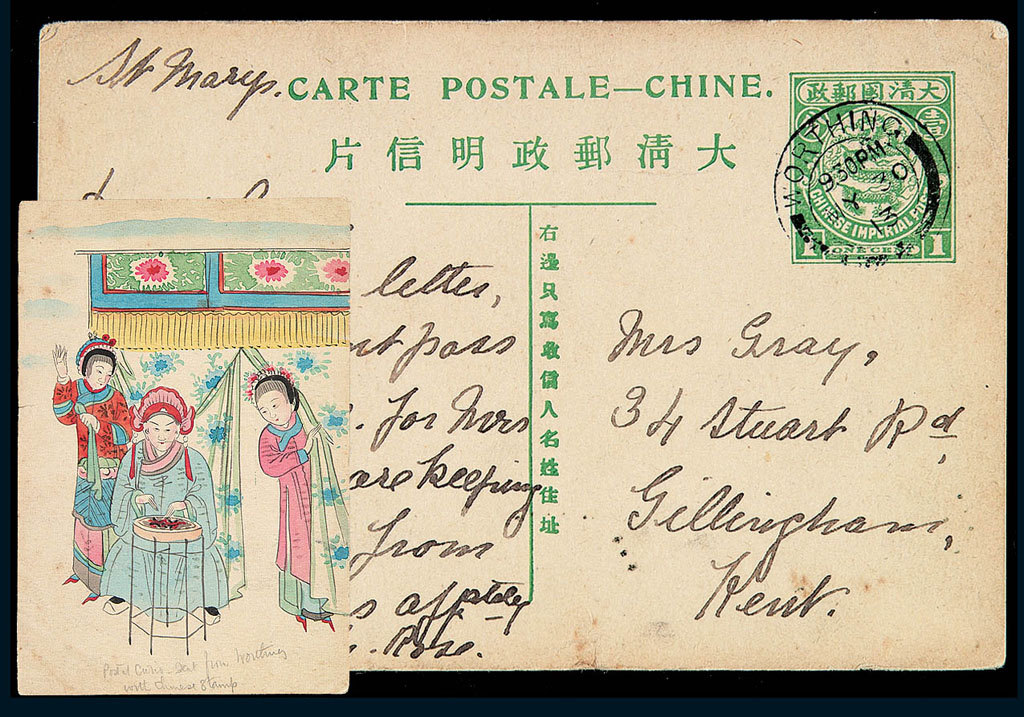 St Marys.
CARTE POSTALE—CHINE.
片信明政郵清大
政郵國清大
壹
WORTHING
9.30PM
30
13
CHINESE IMPERIAL POST
1 ONE CENT 1
letter,
pass
for Mrs
are keeping
from
affptely
Rose.
右邊只寫收信人名姓住址
Mrs Gray,
34 Stuart Rd
Gillingham,
Kent.
Postal Curio - Sent from Worthing
with Chinese Stamp